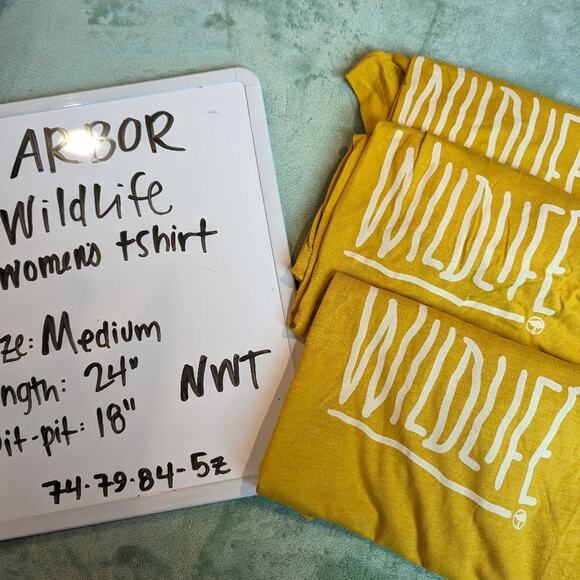 ARBOR
Wildlife
women's tshirt
ze: Medium
ngth: 24"
it-pit: 18"
NWT
74·79·84-5z
WILDLIFE
WILDLIFE
WILDLIFE